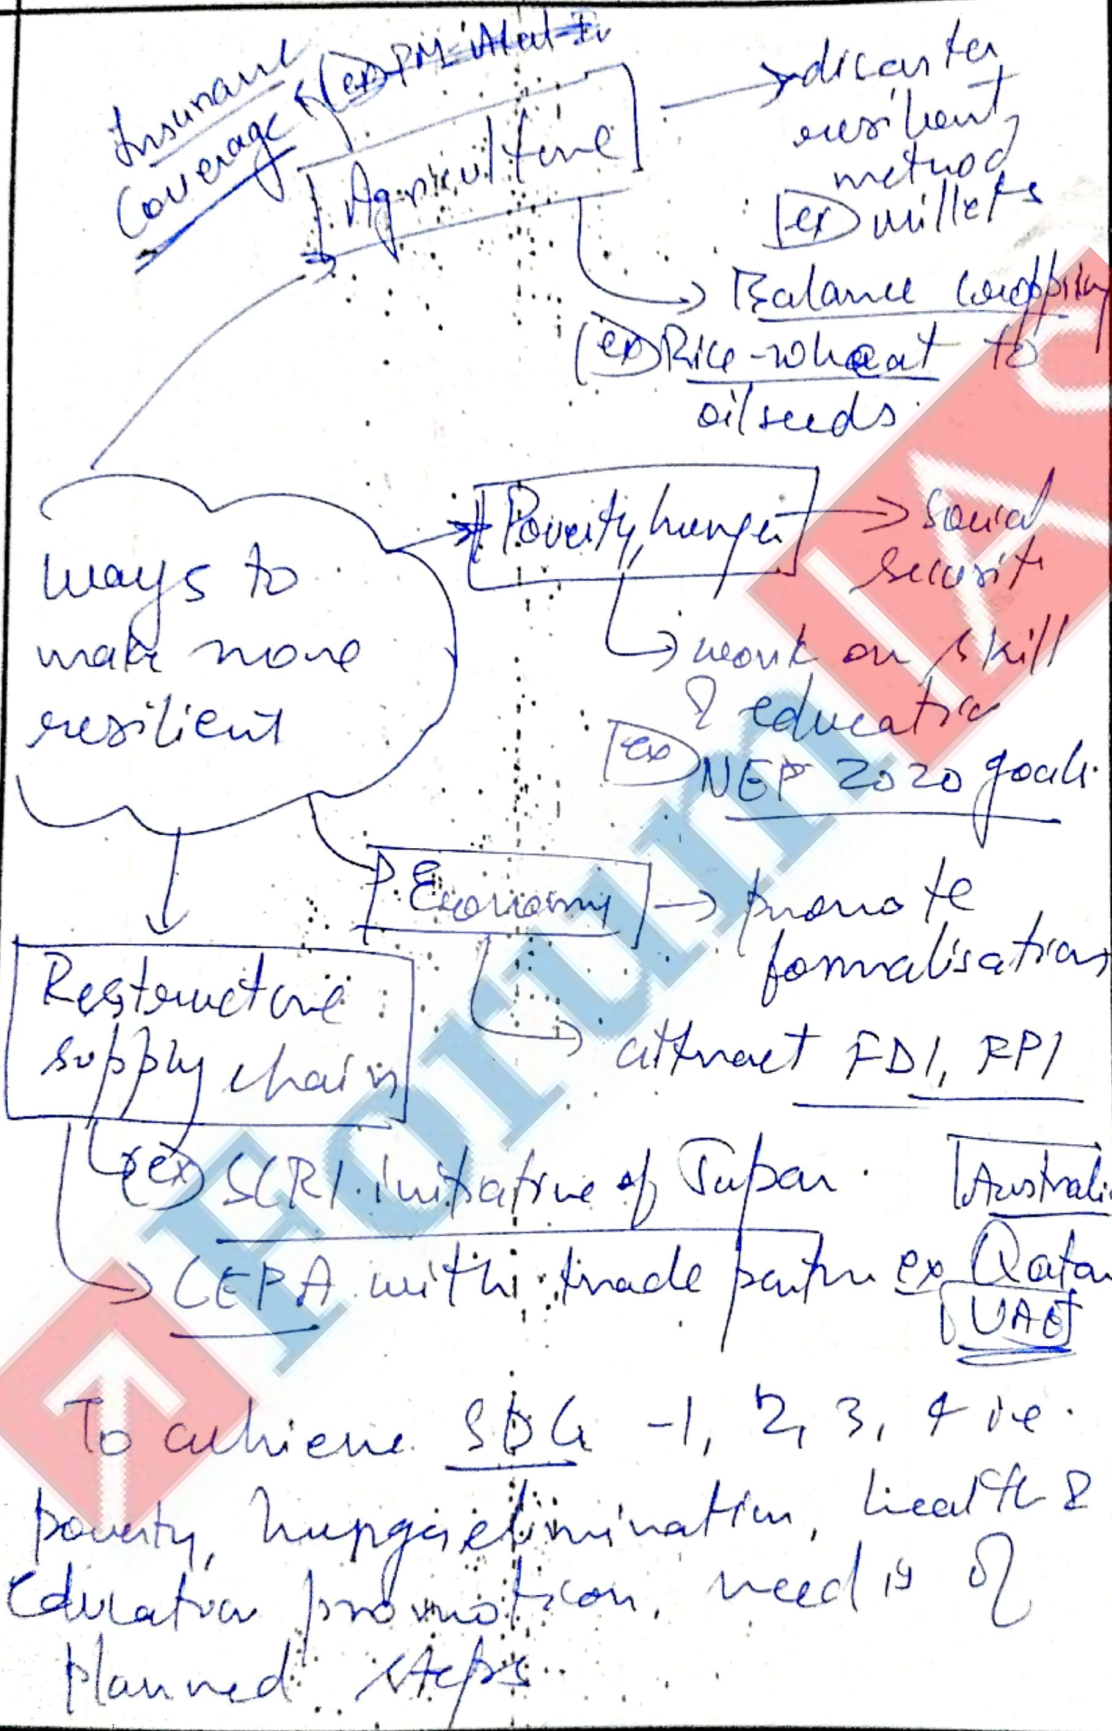 Insurance
Coverage
(ex) PM
Agriculture
disaster
resilient
method
(ex) millets
Balance cropping
(ex) Rice-wheat to
oilseeds.
ways to
make more
resilient
Poverty, hunger
social
securit
work on skill
& education
(ex) NEP 2020 goals.
Economy
promote
formalisation
attract FDI, FPI
Restructure
supply chain
(ex) SCRI initiative of Japan.
CEPA with trade partner ex
Australi
Qatar
UAE
To achieve SDG -1, 2, 3, 4 i.e.
poverty, hunger elimination, health &
Education promotion, need is of
planned steps
Forum IAS